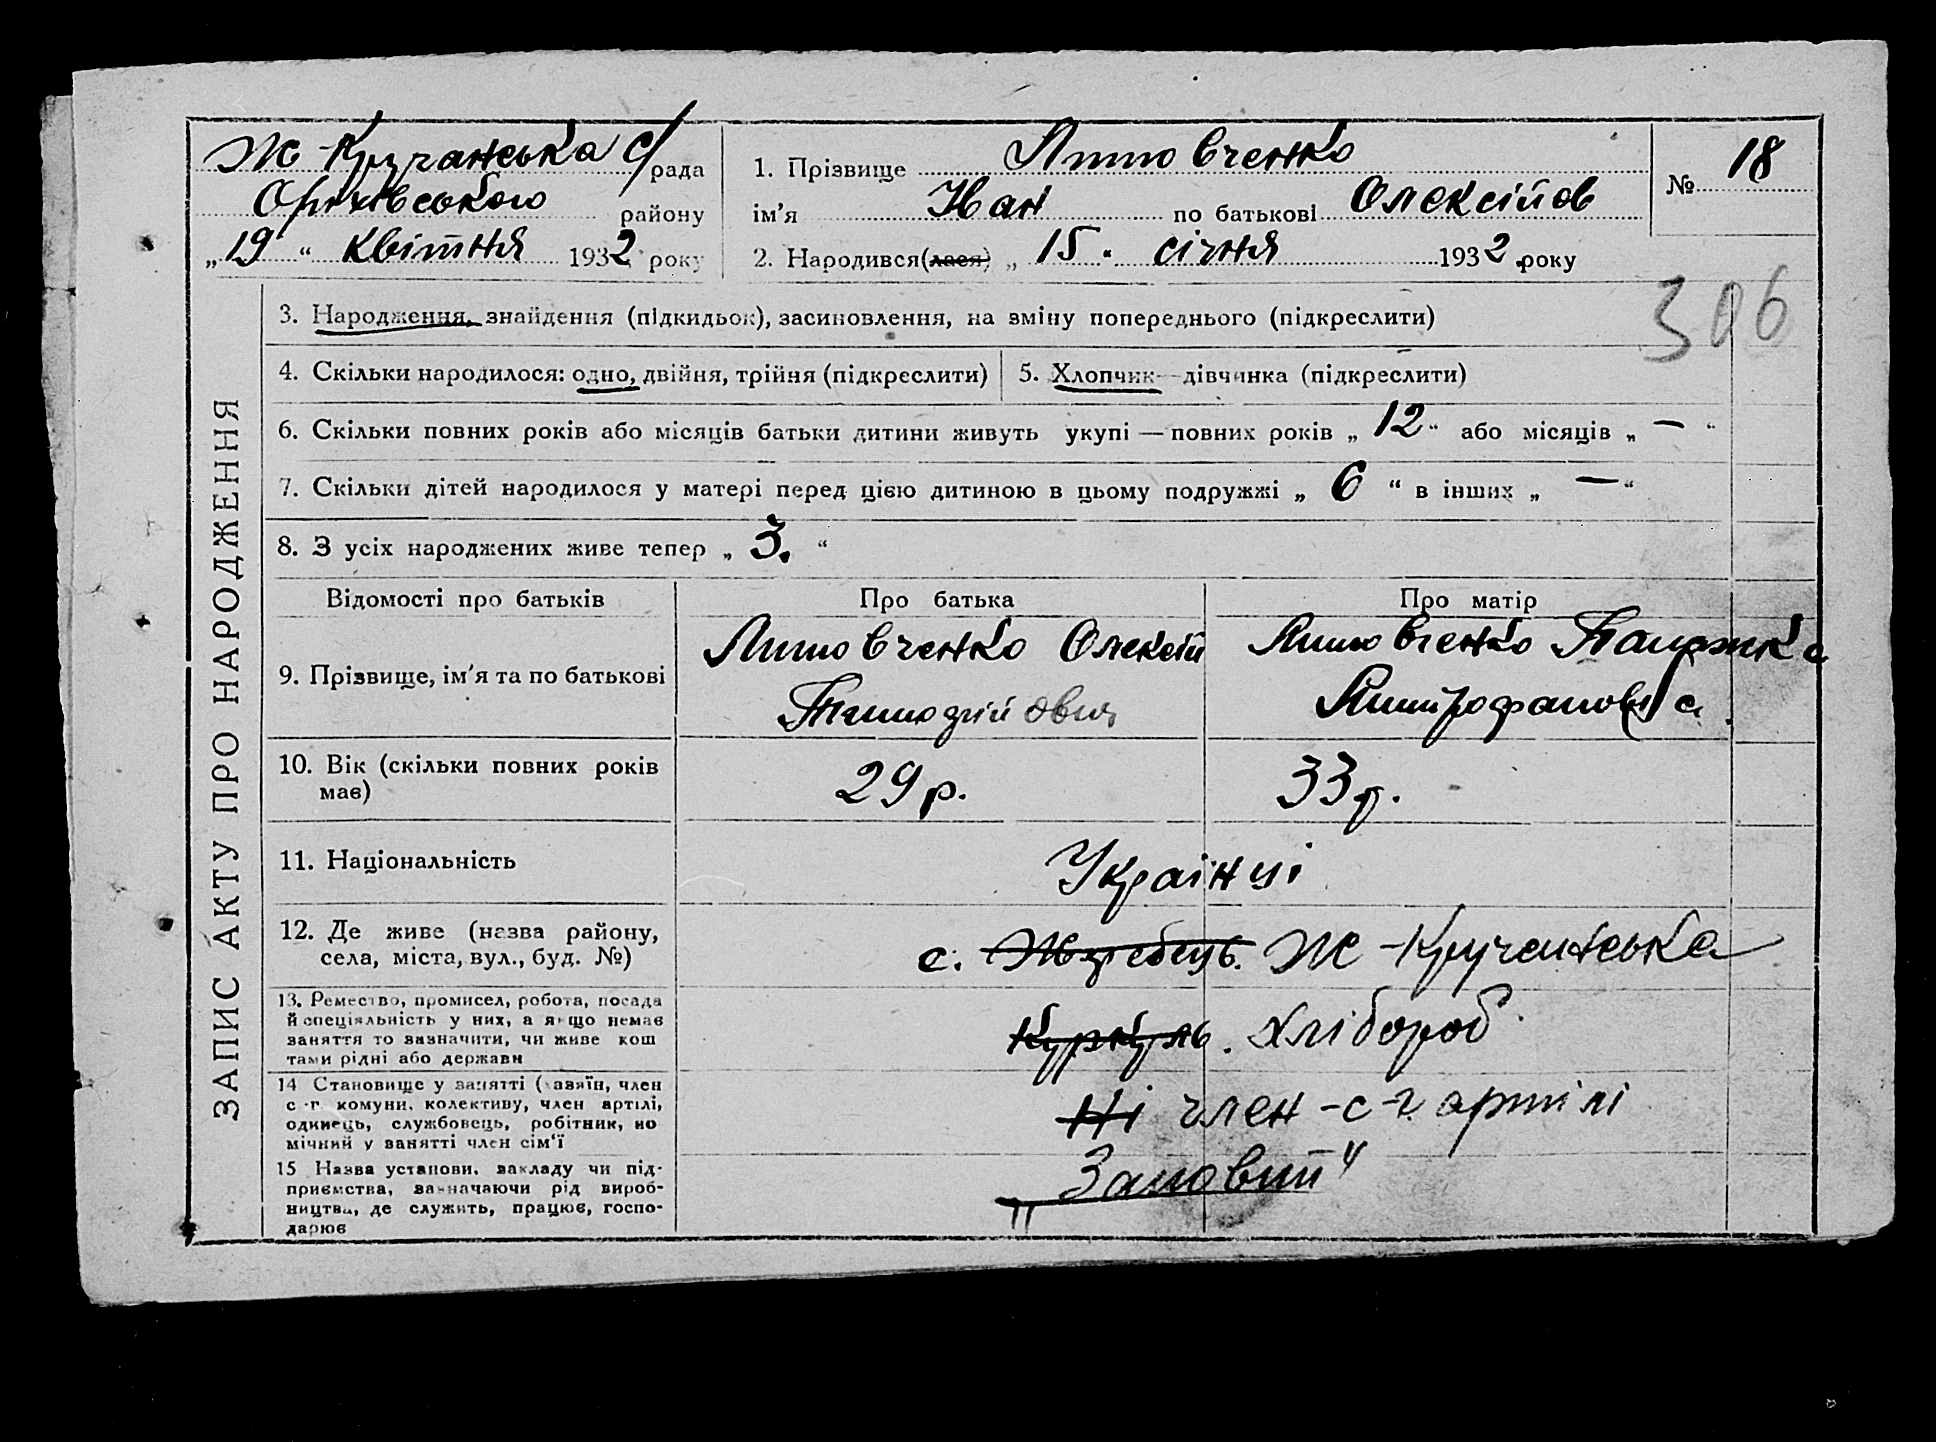 Ж-Кручанська с/рада
Оріхівського району
„19“ квітня 1932 року
1. Прізвище Литовченко
ім’я Иван по батькові Олексійов
2. Народився(лася) „15“ січня 1932 року
№ 18
306
ЗАПИС АКТУ ПРО НАРОДЖЕННЯ
3. Народження, знайдення (підкидьок), засиновлення, на зміну попереднього (підкреслити)
4. Скільки народилося: одно, двійня, трійня (підкреслити)
5. Хлопчик—дівчинка (підкреслити)
6. Скільки повних років або місяців батьки дитини живуть укупі — повних років „12“ або місяців „—“
7. Скільки дітей народилося у матері перед цією дитиною в цьому подружжі „6“ в інших „—“
8. З усіх народжених живе тепер „3.“
Відомості про батьків
Про батька
Про матір
9. Прізвище, ім’я та по батькові
Литовченко Олексій
Литовченко
Митрофановна
10. Вік (скільки повних років
має)
29 р.
33 р.
11. Національність
Українці
12. Де живе (назва району,
села, міста, вул., буд. №)
с. Жеребець. Ж-Кручанська
13. Ремество, промисел, робота, посада
й спеціяльність у них, а якщо немає
заняття то зазначити, чи живе кош
тами рідні або держави
Куркуль. хлібороб
14 Становище у занятті (хазяїн, член
с-г. комуни, колективу, член артілі,
одинець, службовець, робітник, по
мічний у занятті член сім’ї
Ні член-с-г артілі
15 Назва установи, закладу чи під-
приємства, зазначаючи рід вироб-
ництва, де служить, працює, госпо-
дарює